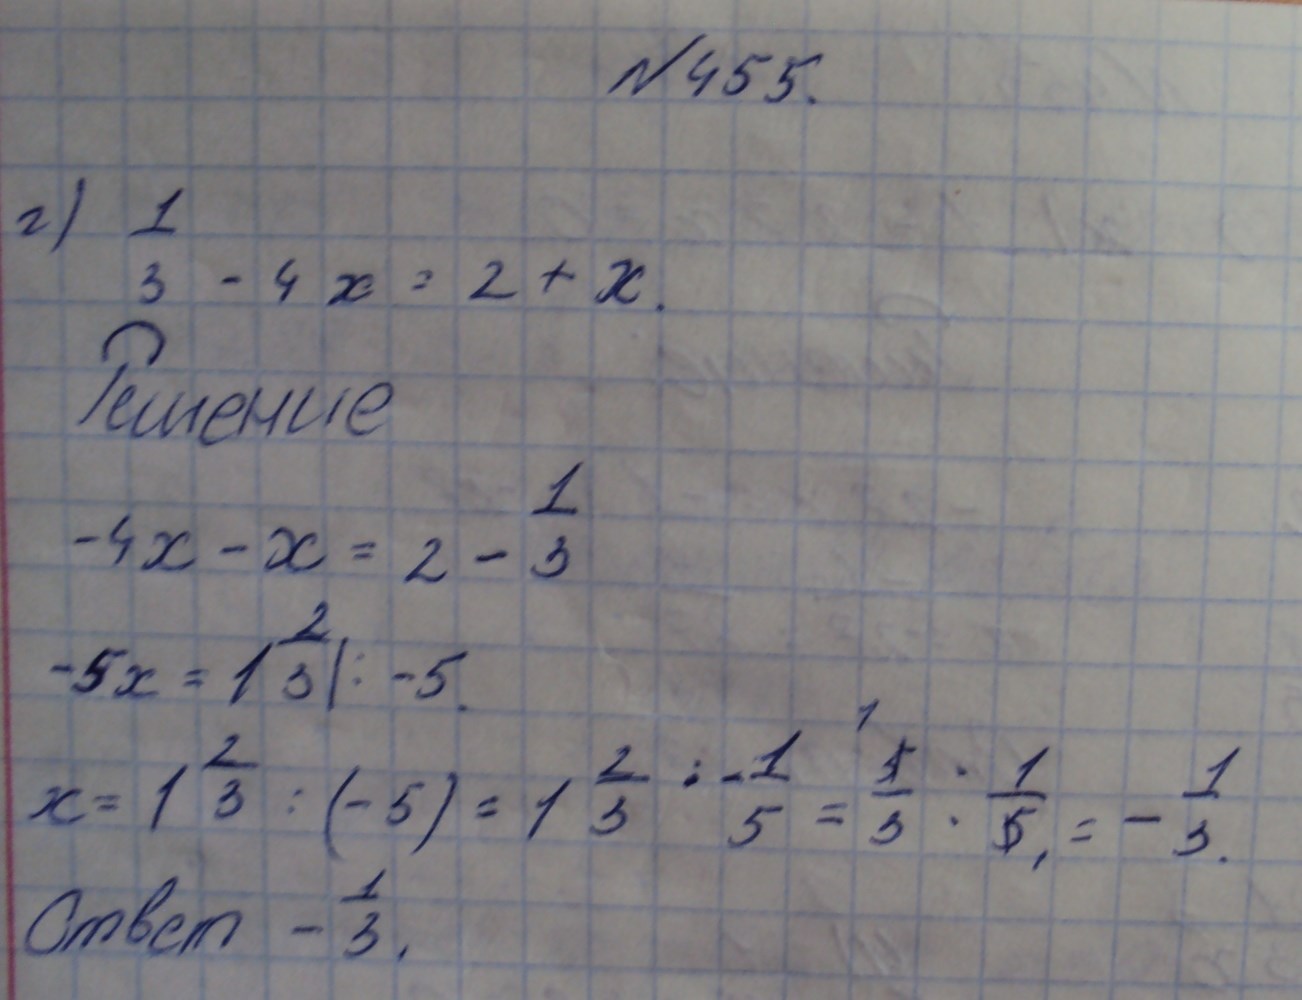 №455.
г) 1/3 - 4x = 2 + x.
Решение
-4x - x = 2 - 1/3
-5x = 1 2/3 |: -5.
x = 1 2/3 : (-5) = 1 2/3 : -1/5 = 5/3 · 1/5 = - 1/3.
Ответ - 1/3.